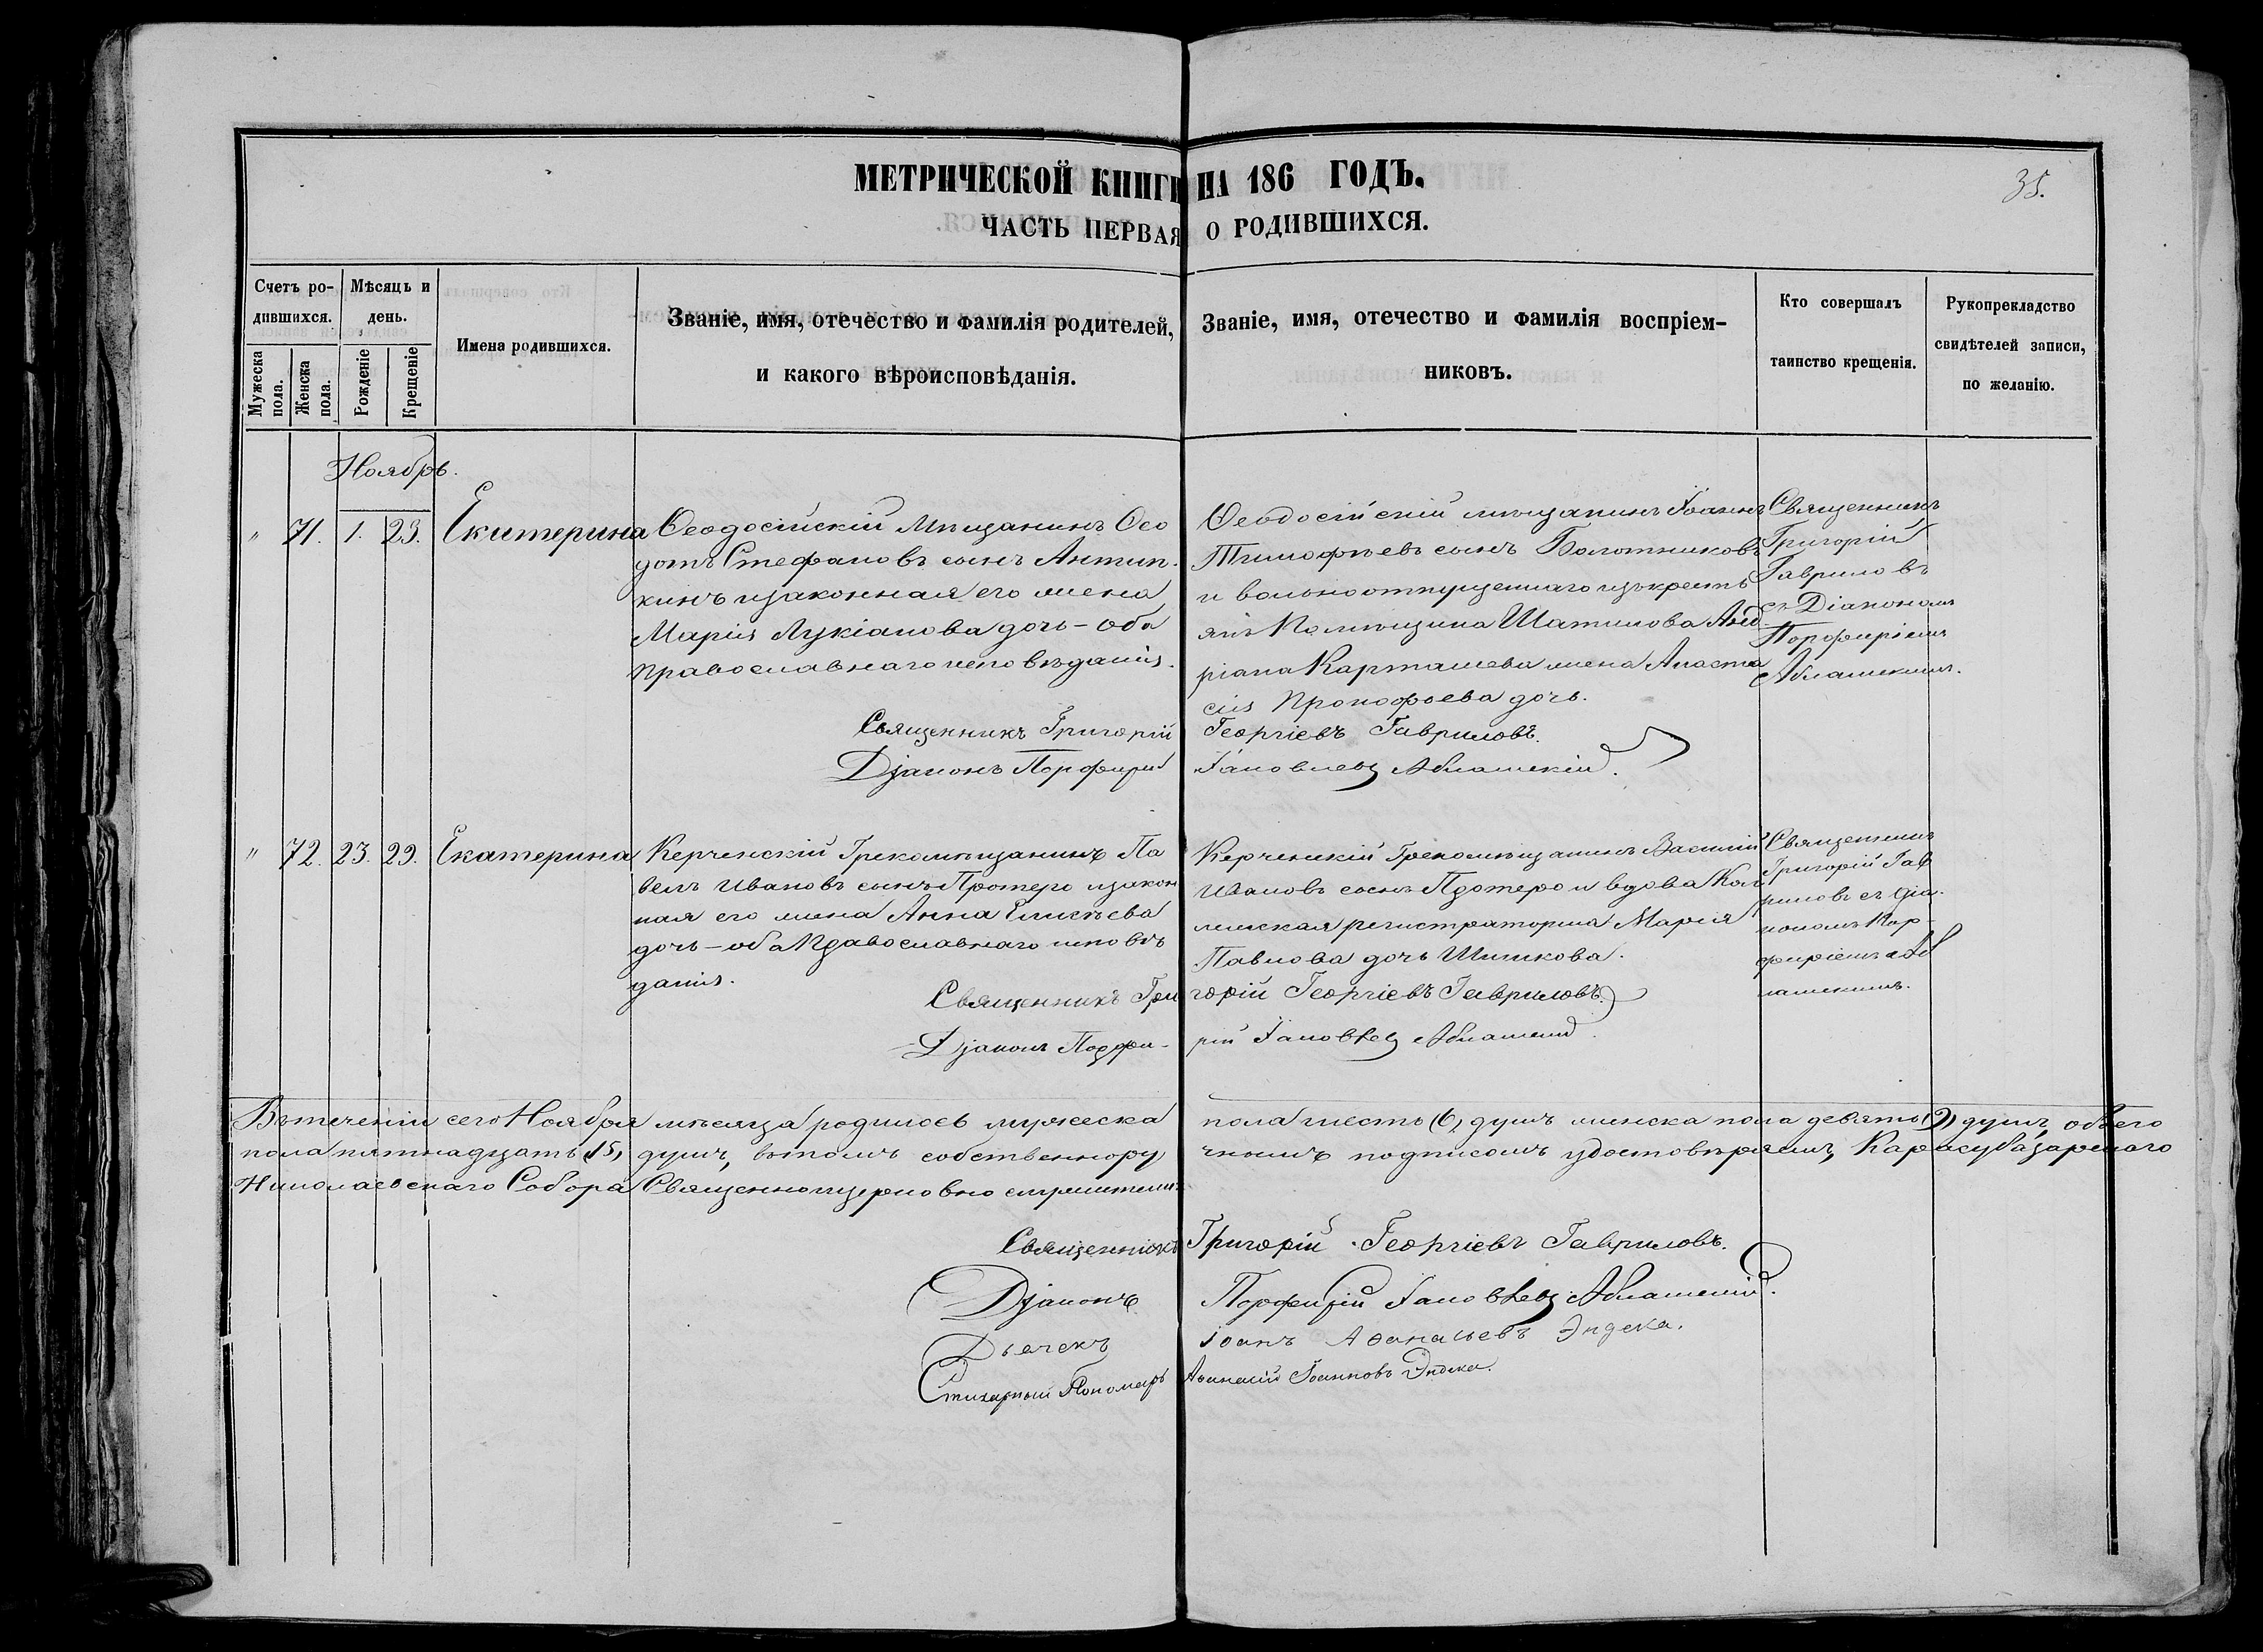 МЕТРИЧЕСКОЙ КНИГИ НА 186 ГОДЪ.
35.
ЧАСТЬ ПЕРВАЯ О РОДИВШИХСЯ.
Счетъ родившихся.
Мужеска пола.
Женска пола.
Мѣсяцъ и день.
Рожденіе
Крещеніе
Имена родившихся.
Званіе, имя, отечество и фамилія родителей,
и какого вѣроисповѣданія.
Званіе, имя, отечество и фамилія воспріем-
никовъ.
Кто совершалъ
таинство крещенія.
Рукоприкладство
свидѣтелей записи,
по желанію.
Ноябрь.
" 71. 1. 23. Екатерина
Ѳеодосійскій Мѣщанинъ Ѳео
дотъ Стефановъ сынъ Антип
кинъ изаконная его жена
Марія Лукіанова дочь - оба
православнаго исповѣданія.
Ѳеодосійскій мѣщанинъ Іоаннъ
Тимофѣевъ сынъ Болотниковъ
и вольноотпущеннаго изъ кресть
янъ Помѣщика Шатилова Анд
ріана Карташева жена Анаста
сія Прокофьева дочь.
Священникъ
Григорій
Гавриловъ
съ Діакономъ
Порфиріемъ
Аблашекимъ.
Священникъ Григорій Георгіевъ Гавриловъ.
Діаконъ Порфирій Іаковлевъ Аблашекій.
" 72. 23. 29. Екатерина
Керченскій Грекомѣщанинъ Па
велъ Ивановъ сынъ Протеро изакон
ная его жена Анна Елисѣева
дочь - оба Православнаго исповѣ
данія.
Керченскій Грекомѣщанинъ Василій
Ивановъ сынъ Протеро и вдова Кол
лежская регистраторша Марія
Павлова дочь Шишкова.
Священникъ
Григорій Гав
риловъ съ Діа-
кономъ Пор-
фиріемъ Аб
лашекимъ.
Священникъ Григорій Георгіевъ Гавриловъ.
Діаконъ Порфирій Іаковлевъ Аблашекій.
Втеченіи сего Ноября мѣсяца родилось мужеска пола шесть (6) душъ женска пола девять (9) душъ, обоего
пола пятнадцать (15) душъ, вътомъ собственнору чнымъ подписомъ удостовѣряемъ, Карасубазарскаго
Николаевскаго Собора Священноицерковно служители:
Священникъ Григорій Георгіевъ Гавриловъ.
Діаконъ Порфирій Іаковлевъ Аблашекій.
Дьячекъ Іоанъ Аѳанасьевъ Эндека.
Стихарный Пономарь Аѳанасій Іоанновъ Эндека.